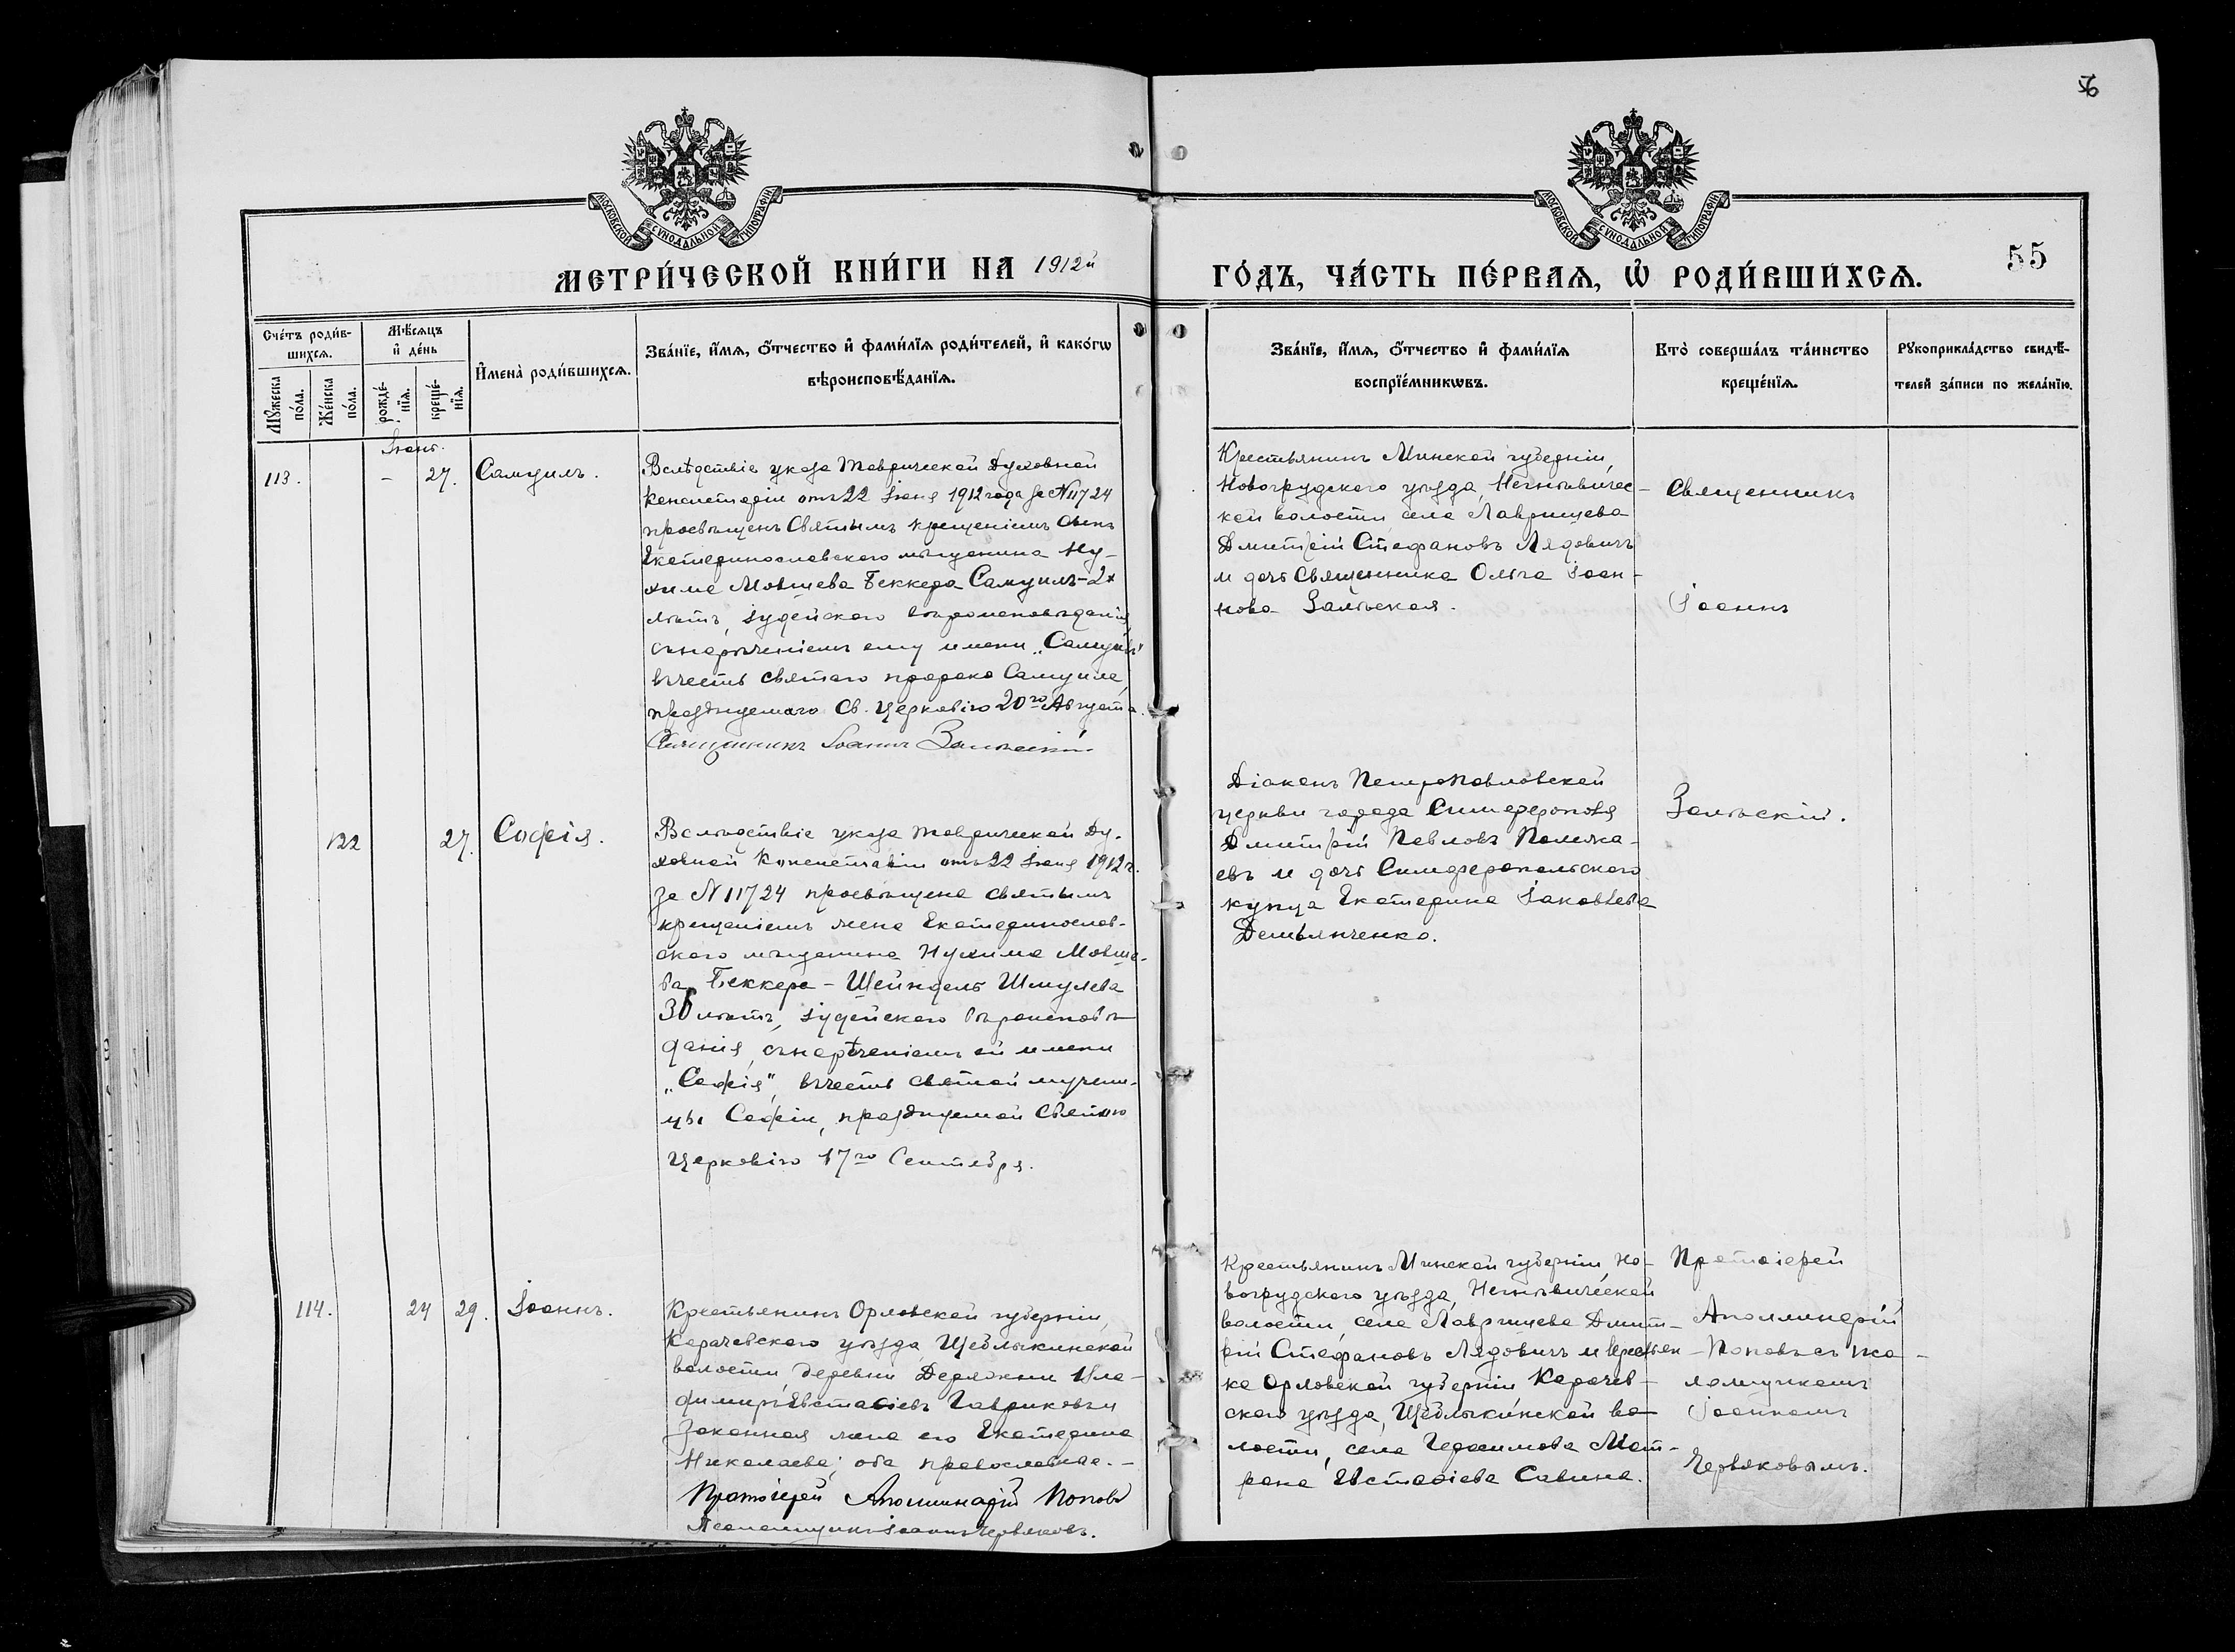 56
МОСКОВСКОЙ СѴНОДАЛЬНОЙ ТИПОГРАФІИ
МОСКОВСКОЙ СѴНОДАЛЬНОЙ ТИПОГРАФІИ
МЕТРИ́ЧЕСКОЙ КНИ́ГИ НА 1912й
ГО́ДЪ, ЧА́СТЬ ПЕ́РВАЯ, Ѡ҆ РОДИ́ВШИХСЯ.
55
Сче́тъ роди́в-
шихся.
Мꙋ́жеска
по́ла.
Же́нска
по́ла.
Мѣ́сяцъ
и҆ де́нь
рожде́-
нїя.
креще́-
нїя.
И҆мена̀ роди́вшихся.
Зва́нїе, и҆́мя, ѻ҆́тчество и҆ фами́лїя роди́телей, и҆ како́гѡ
вѣроисповѣ́данїя.
Зва́нїе, и҆́мя, ѻ҆́тчество и҆ фами́лїя
воспрїе́мникѡвъ.
Кто̀ соверша́лъ та́инство
креще́нїя.
Рꙋкоприкла́дство свидѣ́-
телей за́писи по жела́нїю.
Іюнь.
113.
–
27.
Самуилъ.
Вслѣдствіе указа Таврической Духовной
Консисторіи отъ 22 Іюня 1912 года за № 11724
просвѣщенъ Святымъ крещеніемъ сынъ
Екатеринославскаго мѣщанина Ну-
хима Мовшева Беккера Самуилъ – 2х
лѣтъ, іудейскаго вѣроисповѣданія,
съ нареченіемъ ему имени „Самуилъ"
въ честь святаго пророка Самуила,
празднуемаго Св. Церковію 20го Августа.
Священникъ Іоаннъ Залѣскій
Крестьянинъ Минской губерніи,
Новогрудскаго уѣзда, Негнѣвичес-
кой волости, села Лавришева
Дмитрій Стефановъ Лядовичъ
и дочь Священника Ольга Іоан-
нова Залѣская.
Священникъ
Іоаннъ
Залѣскій.
122
27.
Софія.
Вслѣдствіе указа Таврической Ду-
ховной Консисторіи отъ 22 Іюня 1912 г.
за № 11724 просвѣщена святымъ
крещеніемъ жена Екатеринослав-
скаго мѣщанина Нухима Мовше-
ва Беккера – Шейндель Шмулева
30 лѣтъ, іудейскаго вѣроисповѣ
данія, съ нареченіемъ ей имени
„Софія", въ честь святой мучени-
цы Софіи, празднуемой Святою
Церковію 17го Сентября.
Діаконъ Петропавловской
церкви города Симферополя
Дмитрій Павловъ Полежа-
евъ и дочь Симферопольскаго
купца Екатерина Іаковлева
Демьянченко.
114.
24
29.
Іоаннъ.
Крестьянинъ Орловской губерніи,
Карачевскаго уѣзда, Щеблыкинской
волости, деревни Держкни Вла-
димиръ Евстафіевъ Гавриковъ и
законная жена его Екатерина
Николаева; оба православные. –
Протоіерей Аполлинарій Поповъ
Псаломщикъ Іоаннъ Червяковъ.
Крестьянинъ Минской губерніи, Но-
вогрудскаго уѣзда, Негнѣвической
волости, села Лавришева Дмит-
рій Стефановъ Лядовичъ и крестьян-
ка Орловской губерніи, Карачев-
скаго уѣзда, Щеблыкинской во-
лости, села Герасимова Мат-
рона Евстафіева Савина.
Протоіерей
Аполлинарій
Поповъ съ пса-
ломщикомъ
Іоанномъ
Червяковымъ.